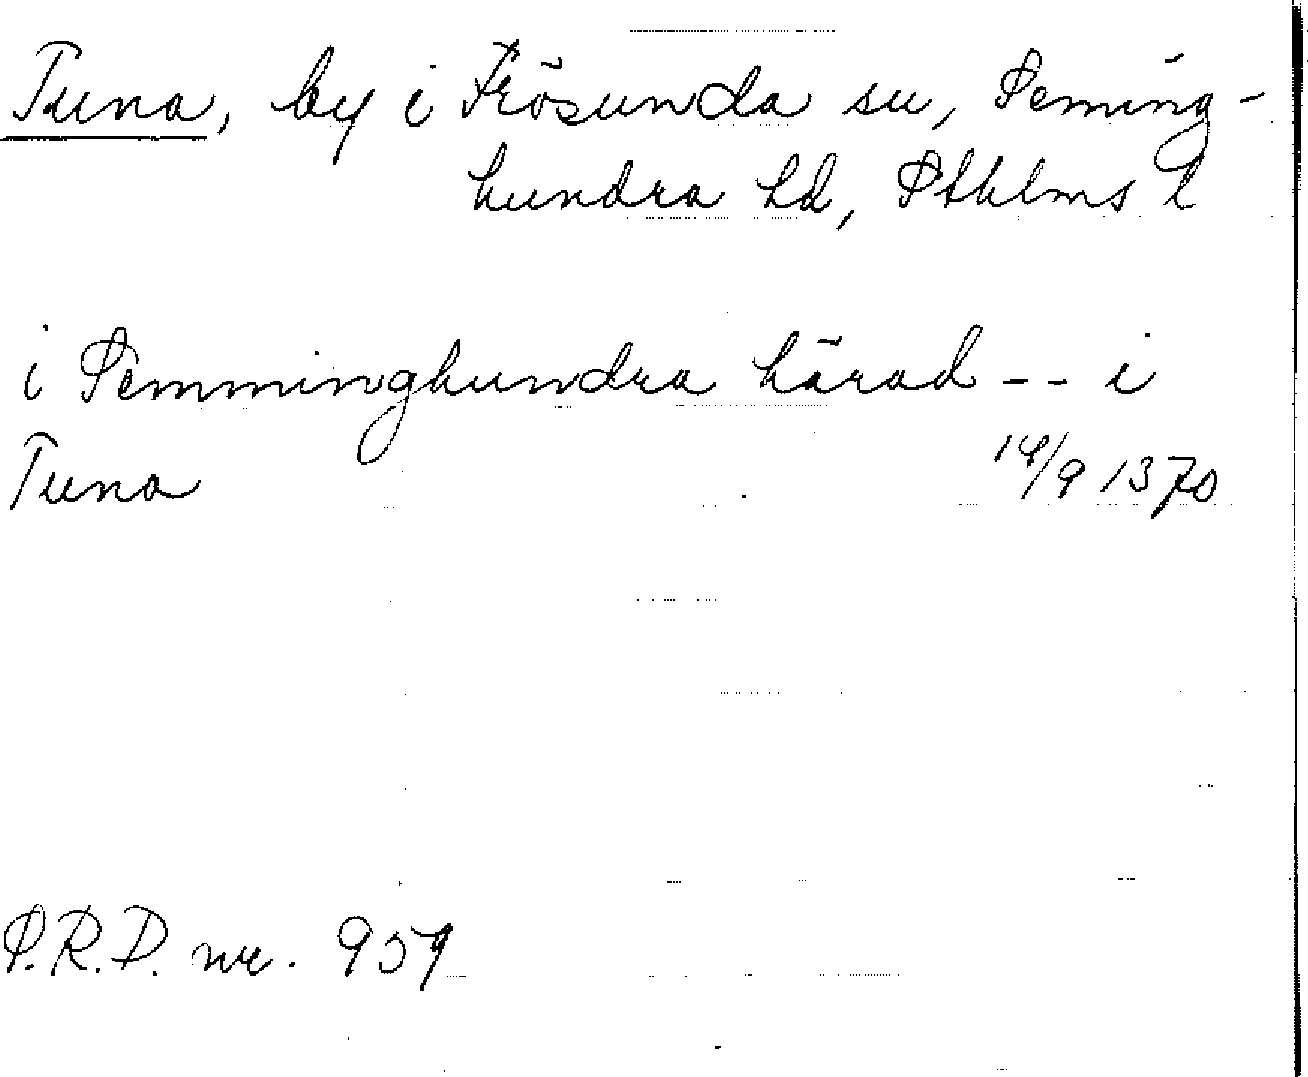 Tuna, by i Frösunda sn, Seming-
hundra hd, Sthlms l
i Semminghundra härad -- i
Tuna 14/9 1370
S.R.P. nr. 959